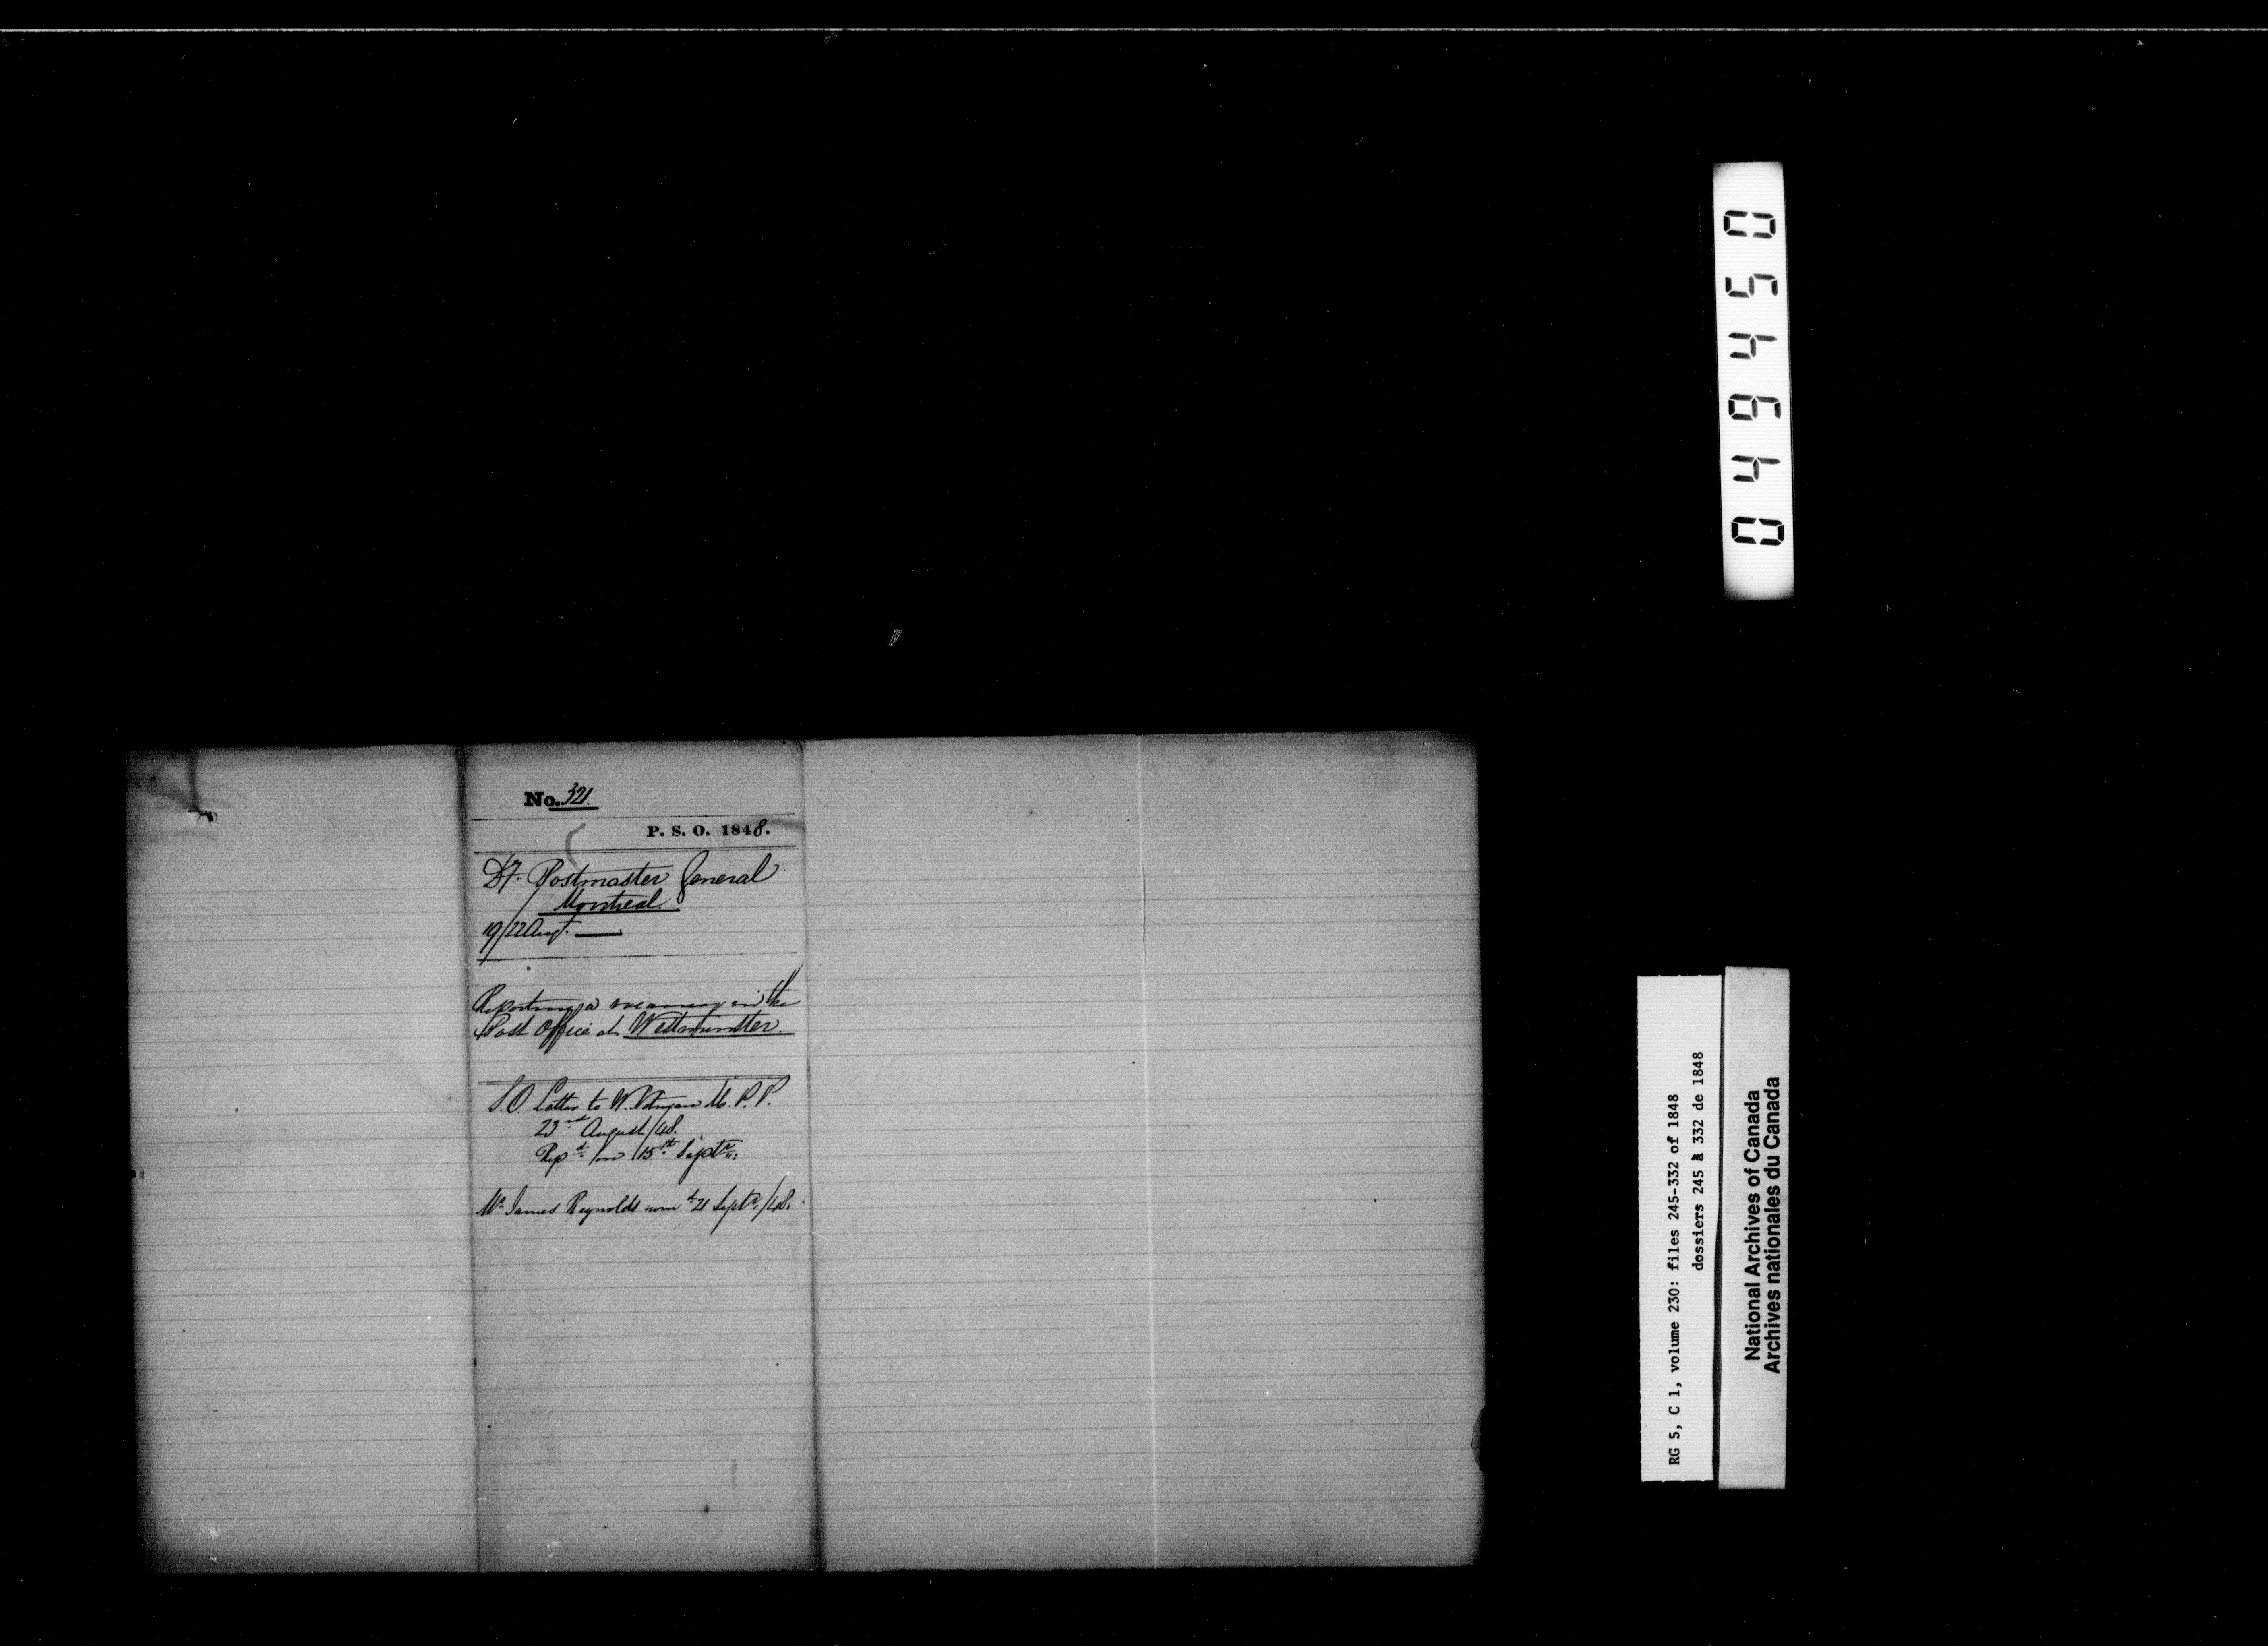 No. 321.
P. S. O. 1848.
Dy. Postmaster General
Montreal
19/22 Augt.
Reporting a vacancy in the
Post Office at Westminster.
S.O. Letter to W. Notman M.P.P.
23rd August/48.
Repd. on 15th Septr.
Mr. James Reynolds nomd. 21 Septr./48.
054640
RG 5, C 1, volume 230: files 245-332 of 1848
dossiers 245 à 332 de 1848
National Archives of Canada
Archives nationales du Canada